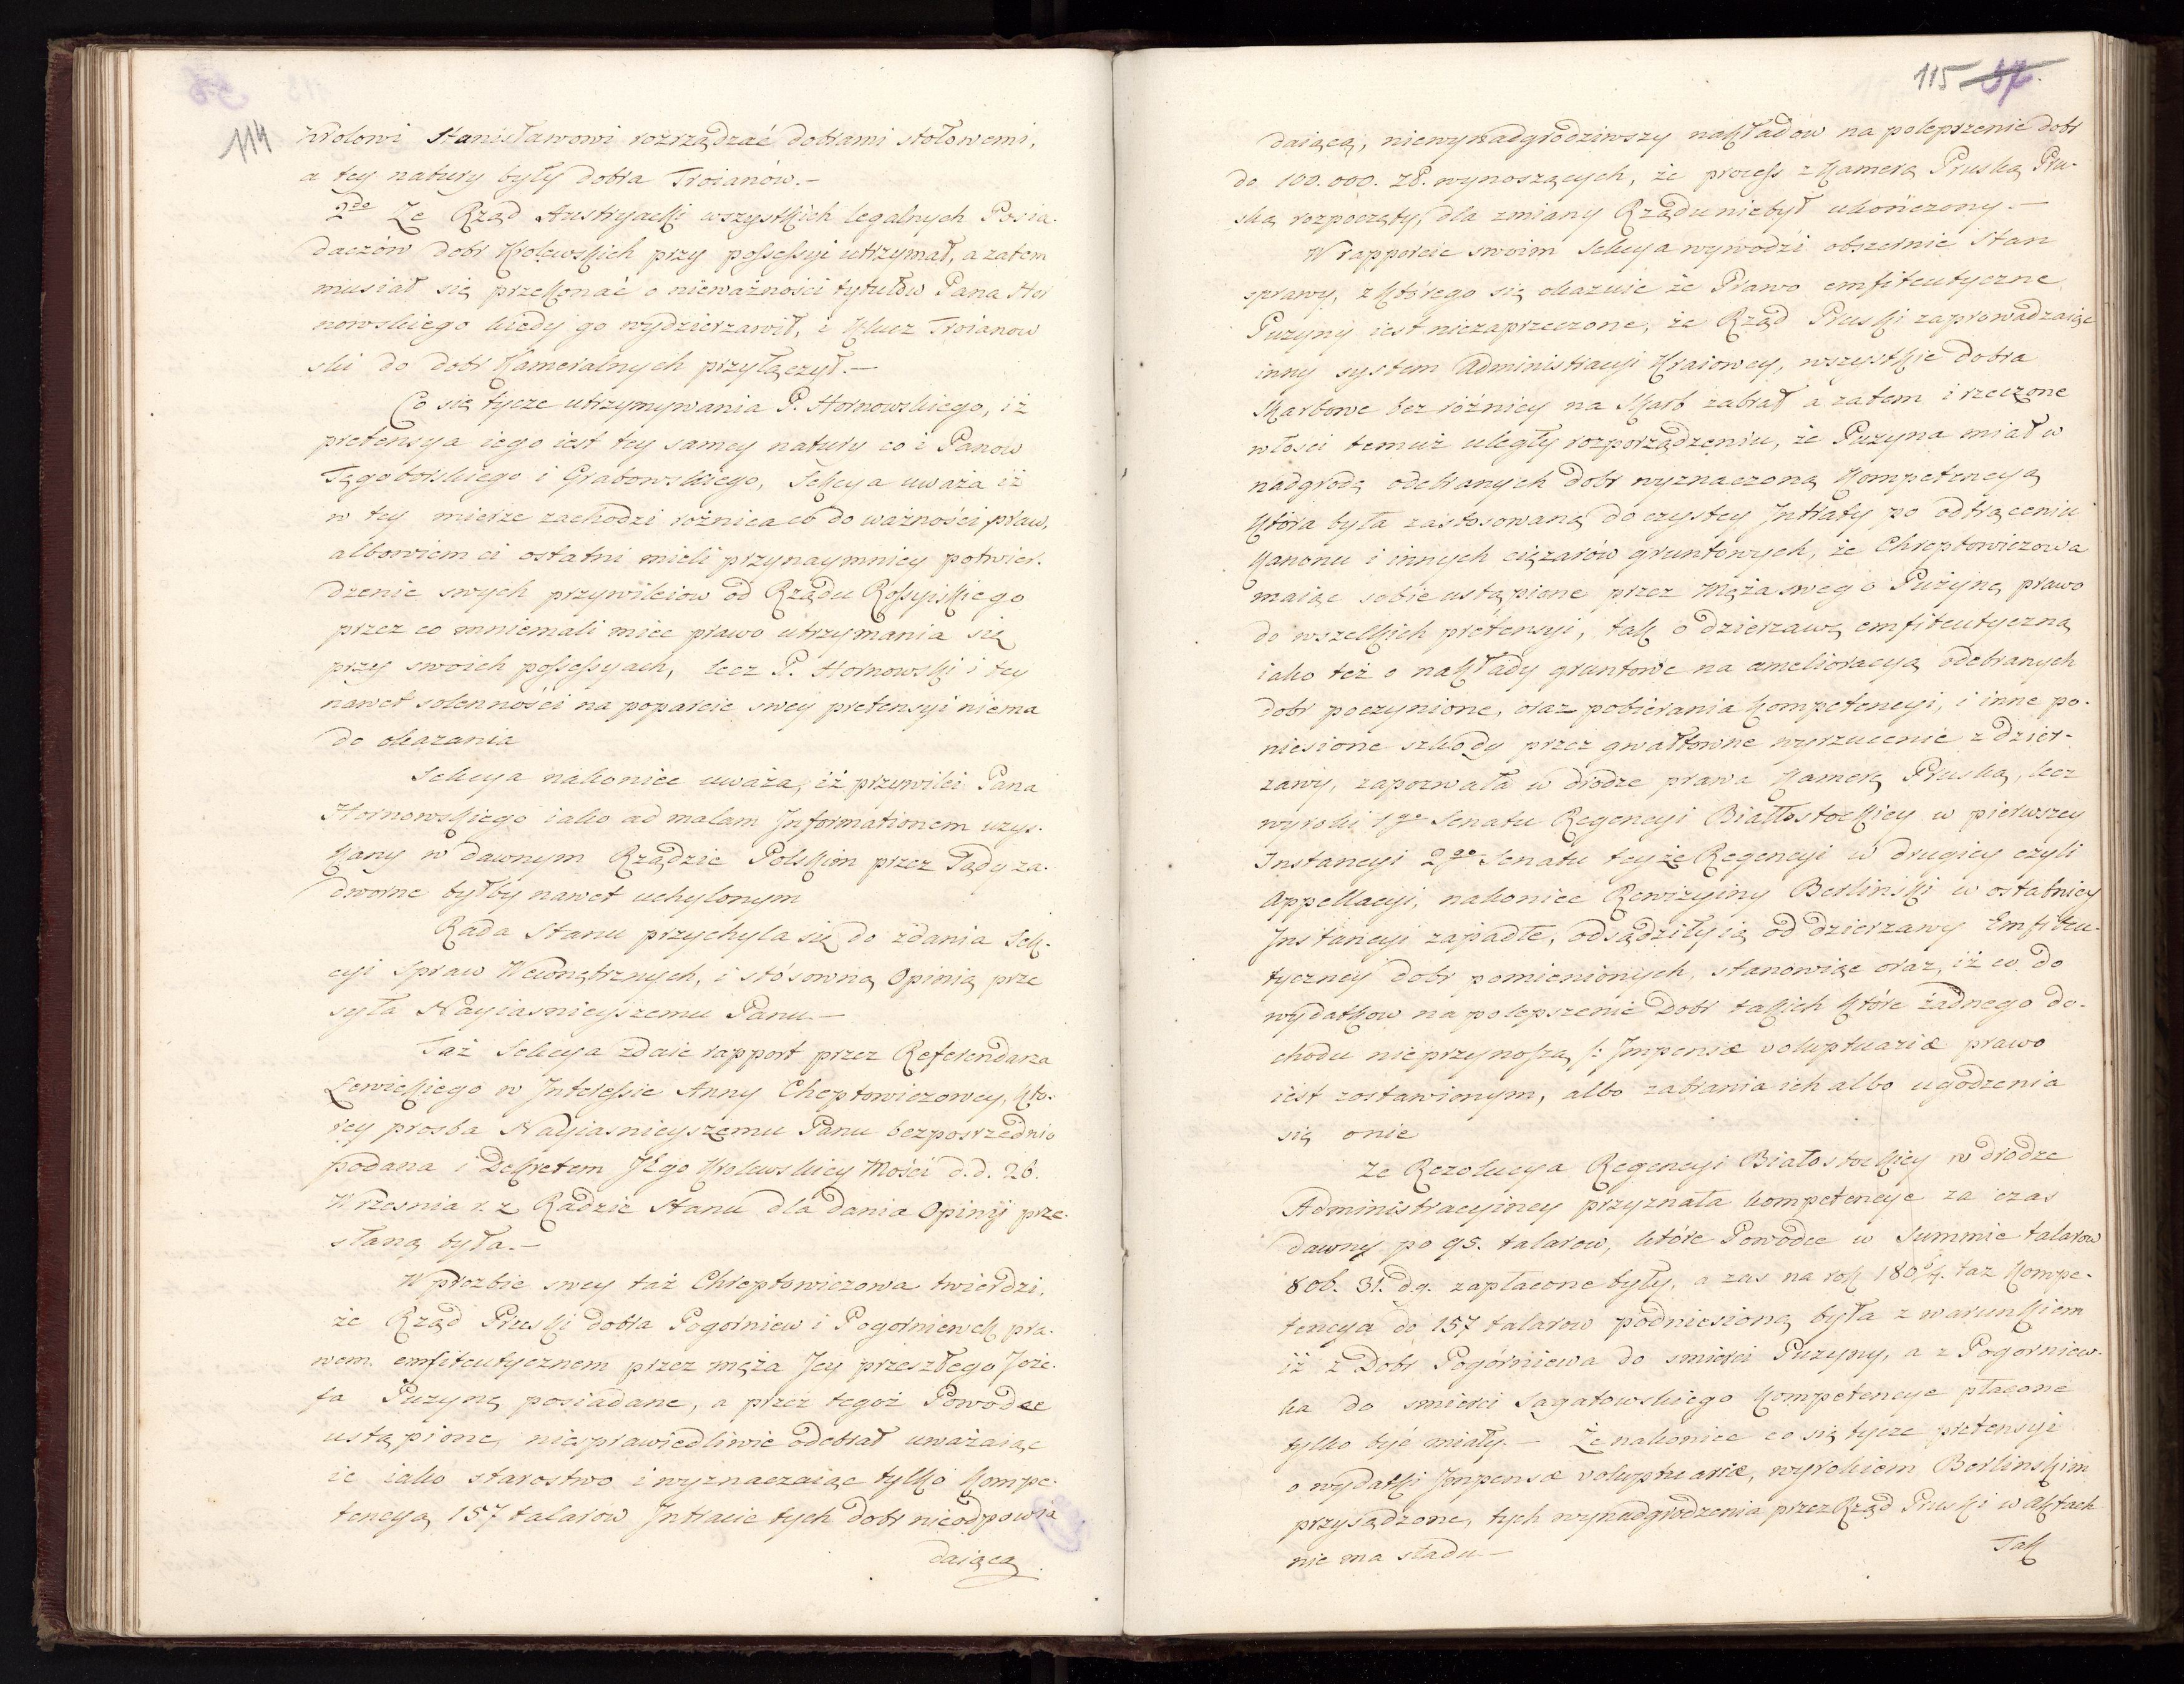 114
Królowi Stanisławowi rozrządzać dobrami stołowemi,
a tey natury były dobra Troianów.—
2do Że Rząd Austryacki wszystkich legalnych Posia-
daczów dobr Krolewskich przy possessyi utrzymał, a zatem
musiał się przekonać o nieważności tytułów Pana Hor
nowskiego kiedy go wydzierzawił, i Klucz Troianow
ski do dobr Kameralnych przyłączył.—
Co się tycze utrzymywania P. Hornowskiego, iż
pretensya iego iest tey samey natury co i Panow
Tęgoborskiego i Grabowskiego, Sekcya uważa iż
w tey mierze zachodzi rożnica co do ważności praw,
albowiem ci ostatni mieli przynaymniey potwier-
dzenie swych przywileiow od Rządu Rossyiskiego
przez co mniemali miec prawo utrzymania się
przy swoich possessyach, lecz P. Hornowski i tey
nawet solennośći na poparcie swey pretensyi niema
do okazania
Sekcya nakoniec uważa, iż przywilei Pana
Hornowskiego iako ad malam Informationem uzys-
kany w dawnym Rządzie Polskim przez Sądy za-
dworne byłby nawet uchylonym
Rada Stanu przychyla się do zdania Sek-
cyi Spraw Wewnętrznych, i stósowną Opinią prze
syła Nayiasnieyszemu Panu.—
Taż Sekcya zdaie rapport przez Referendarza
Lewickiego w Interessie Anny Cheptowiczowey, kto-
rey prosba Nayiasnieyszemu Panu bezposrzednio
podana i Dekretem JEgo Krolewskiey Mośći d.d. 26.
Wrzesnia r. z. Radzie Stanu dla dania Opinij prze-
słaną była.—
W prozbie swey taż Chreptowiczowa twierdzi,
że Rząd Pruski dobra Pogorniew i Pogorniewek pra-
wem emfiteutycznem przez męża Jey przeszłego Joze-
fa Puzynę posiadane, a przez tegoż Powodce
ustąpione, niesprawiedliwie odebrał uważaiąc
ie iako starostwo i wyznaczaiąc tylko kompe-
tencyą 157 talarów Intracie tych dobr nieodpowia
daiącą
115 57.
daiącą, niewynadgrodziwszy nakładów na poleprzenie dobr
do 100.000. Zł. wynoszących, że process z Kamerą Pruską Pru-
ską rozpoczęty, dla zmiany Rządu niebył ukończony.—
W rapporcie swoim Sekcya wywodzi obszernie Stan
sprawy, z którego się okazuie że Prawo emfiteutyczne
Puzyny iest niezaprzeczone, że Rząd Pruski zaprowadzaiąc
inny system Administracyi Kraiowey, wszystkie dobra
Skarbowe bez różnicy na Skarb zabrał a zatem i rzeczone
włosci temuż uległy rozporządzeniu, że Puzyna miał w
nadgrodę odebranych dobr wyznaczoną Kompetencyą
która była zastosowaną do czystey Intraty po odtrąceniu
Kanonu i innych ciężarów gruntowych, że Chreptowiczowa
maiąc sobie ustąpione przez Męża swego Pużynę prawo
do wszelkich pretensyi, tak o dzierzawę emfiteutyczną
iako też o nakłady gruntowe na amelioracyą odebranych
dobr poczynione, oraz pobierania kompetencyi, i inne po-
niesione szkody przez gwałtowne wyrzucenie z dzier-
zawy, zapozwała w drodze prawa Kamerę Pruską, lecz
wyroki 1go Senatu Regencyi Białłostockiey w pierwszey
Instancyi 2go Senatu teyże Regencyi w drugiey czyli
Appellacyi, nakoniec Rewizyiny Berlinski w ostatniey
Instancyi zapadłe, odsądziły ią od dzierzawy Emfiteu-
tyczney dobr pomienionych, stanowiąc oraz, iż co do
wydatkow na polepszenie Dobr takich które żadnego do-
chodu nieprzynoszą /: Impensæ voluptuariæ prawo
iest zostawionym, albo zabrania ich albo ugodzenia
się onie
Że Rezolucya Regencyi Białostockiey w drodze
Administracyiney przyznała kompetencye za czas
dawny po 95. talarow, które Powodce w Summie talarow
806. 31. dg. zapłacone były, a zas na rok 180 3/4. taż kompe-
tencya do 157 talarow podniesioną była z warunkiem
iż z Dobr Pogórniewa do smierci Puzyny, a z Pogorniew-
ka do smierci Sagatowskiego kompetencye płacone
tylko być miały.— Że nakoniec co się tycze pretensyi
o wydatki Impensæ voluptuariæ, wyrokiem Berlinskim
przysądzone, tych wynadgrodzenia przez Rząd Pruski w Aktach
nie ma sladu.—
Tak